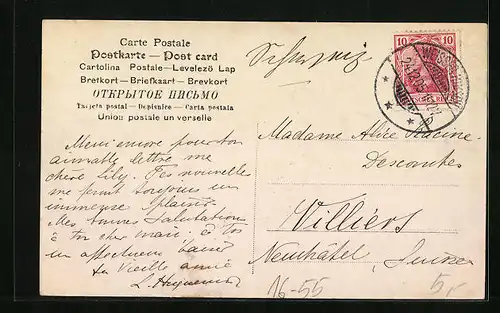 Carte Postale
Postkarte — Post card
Cartolina Postale — Levelező Lap
Bretkort — Briefkaart — Brevkort
ОТКРЫТОЕ ПИСЬМО
Union postale universelle
10 10
Merci encore pour ton
aimable lettre ma
chère Lily. Tes nouvelles
me font toujours un
immense plaisir.
Mes bonnes salutations
à ton cher mari. à toi
un affectueux baiser
ta vieille amie
L.
Madame
Descombes
Villiers
Neuchâtel, Suisse
16-55
5,-